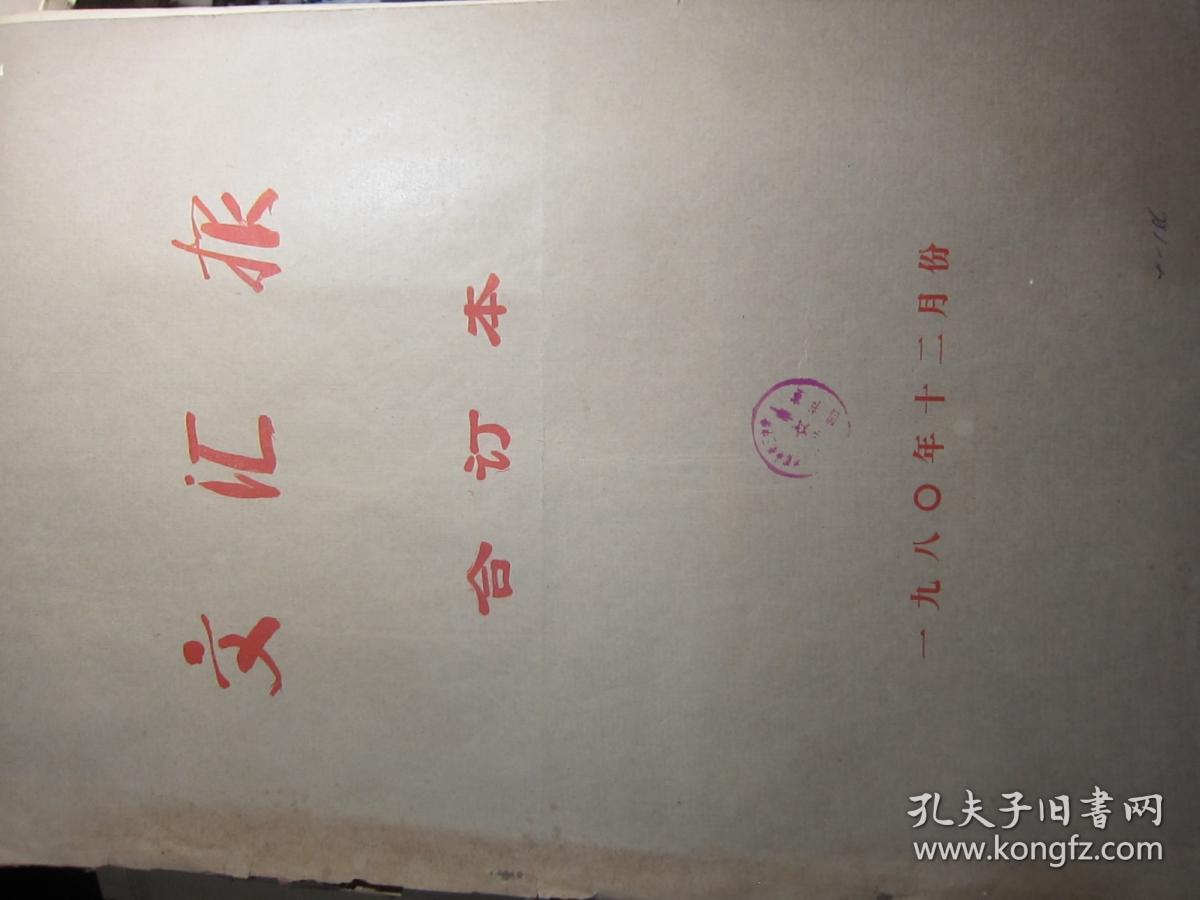 文汇报
合订本
一九八〇年十二月份
孔夫子旧书网
www.kongfz.com